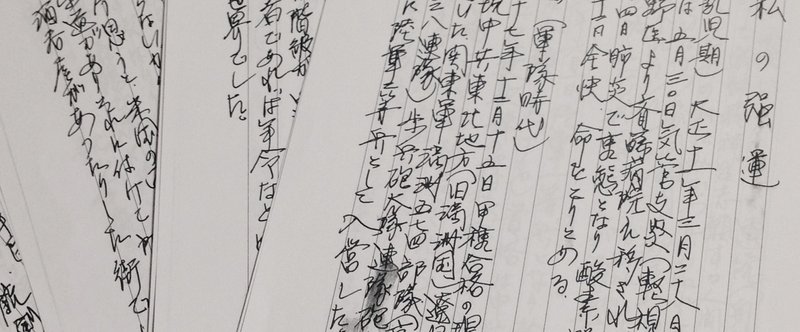 私の強運
乳児期) 大正十一年三月二十八日
は五月三〇日気管支炎(軽
野医より 病院に移され
四日肺炎で重態となり酸素
十二日全快 命をとりとめる。
(軍隊時代)
十七年十二月十五日甲種合格の現
中共東北地方(旧満洲国)遼
いた関東軍 満洲五七四部隊(
三八連隊)歩兵砲大隊連隊砲
に陸軍二等兵として入営した
階級が
者であれば年令など
世界でした。
らないか
り思うと、
道があり それに
店があったりした街で